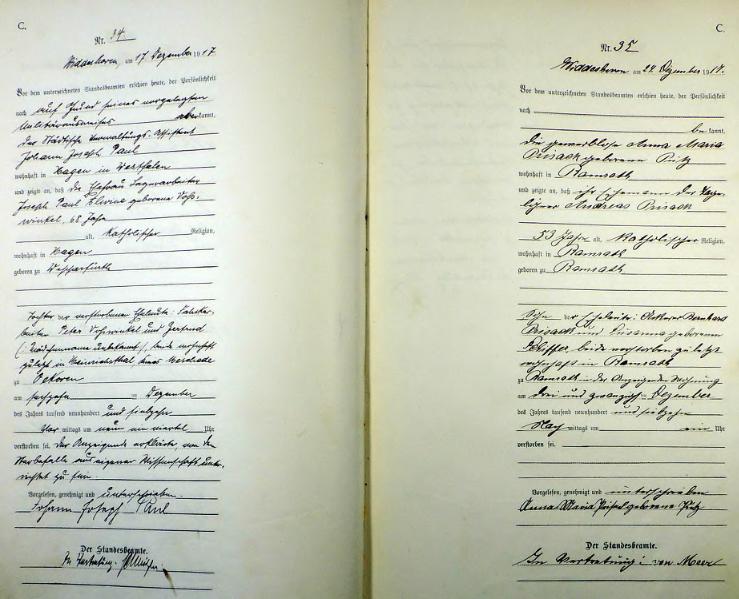 C.
Nr. 34
Widdeshoven, am 17 Dezember 1917
Vor dem unterzeichneten Standesbeamten erschien heute, der Persönlichkeit
nach auf Grund seines vorgelegten
Militärausweises anerkannt,
der Städtische Verwaltungs-Assistent
Johann Joseph Paul
wohnhaft in Hagen in Westfalen
und zeigte an, daß die Ehefrau Lagerarbeiter
Joseph Paul geborene Voß-
winkel, 68 Jahre
alt, Katholischer Religion,
wohnhaft in Hagen
geboren zu Wipperfürth
Tochter der verstorbenen Eheleute: Fabrikar-
beiter Peter Voßwinkel und Gertrud
(Mädchenname unbekannt), beide wohnhaft
zuletzt in Heinrichsthal, Kreis Meschede
zu Oekoven
am sechszehn Dezember
des Jahres tausend neunhundert und siebzehn
Vor mittags um neun ein viertel Uhr
verstorben sei. Der Anzeigende erklärte, von dem
Sterbefalle aus eigener Wissenschaft unter-
richtet zu sein
Vorgelesen, genehmigt und unterschrieben.
Johann Joseph Paul
Der Standesbeamte.
In Vertretung:
C.
Nr. 35
Widdeshoven am 24. Dezember 1917.
Vor dem unterzeichneten Standesbeamten erschien heute, der Persönlichkeit
nach
bekannt,
die gewerblose Anna Maria
Prisack geborene Pütz
wohnhaft in Ramrath
und zeigte an, daß ihr Ehemann der Tage-
löhner Andreas Prisack
53 Jahre alt, Katholischer Religion,
wohnhaft in Ramrath
geboren zu Ramrath
Sohn der Eheleute: Ackerer Bernhard
Prisack und Susanna geborenen
beide verstorben zuletzt
wohnhaft in Ramrath
zu Ramrath in der Anzeigende Wohnung
am drei und zwanzigsten Dezember
des Jahres tausend neunhundert und siebzehn
Nachmittags um ein Uhr
verstorben sei.
Vorgelesen, genehmigt und unterschrieben
Anna Maria geborene Pütz
Der Standesbeamte.
In Vertretung: von